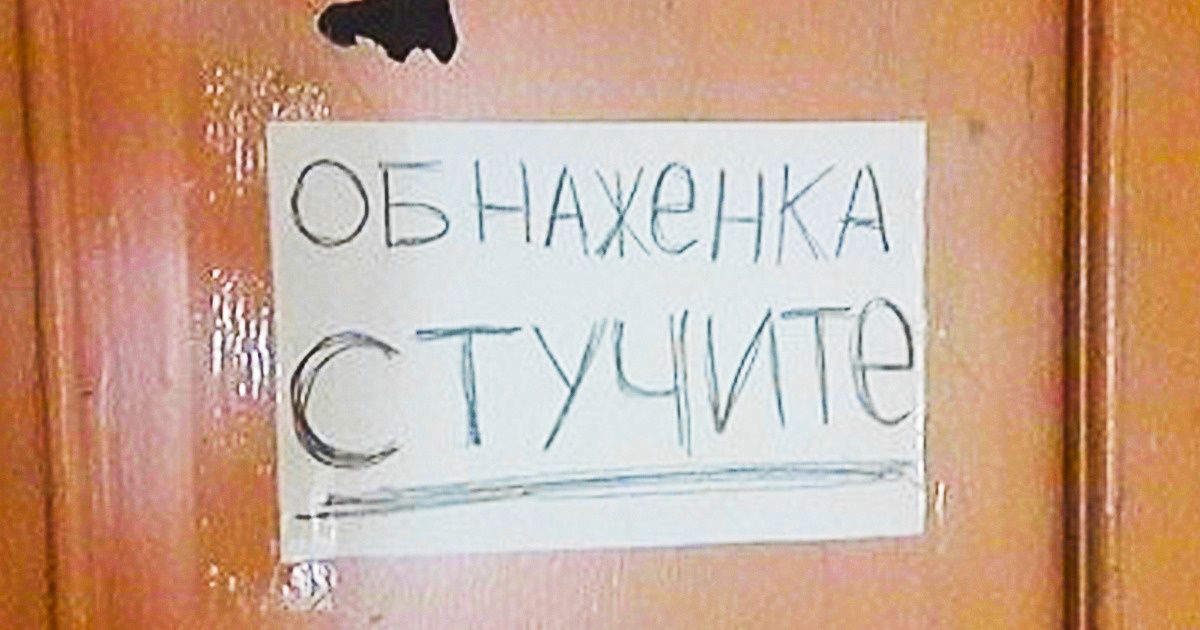 ОБНАЖЕНКА
СТУЧИТЕ